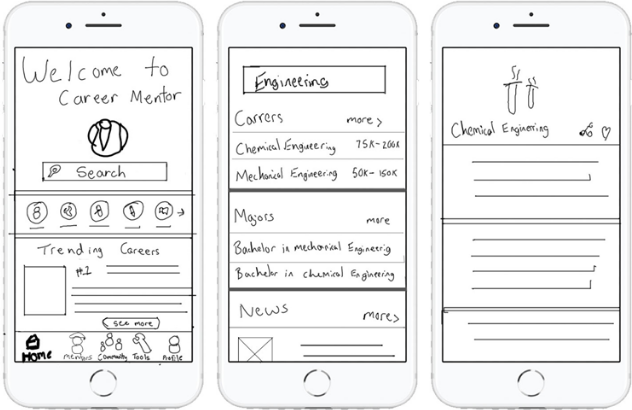 Welcome to
Career Mentor
Search
Trending Careers
#1
see more
Home
Mentors
Community
Tools
Profile
Engineering
Carrers more >
Chemical Engineering 75K-200K
Mechanical Engineering 50K-150K
Majors more
Bachelor in mechanical Engineerig
Bachelor in chemical Engineering
News more >
Chemical Engineering